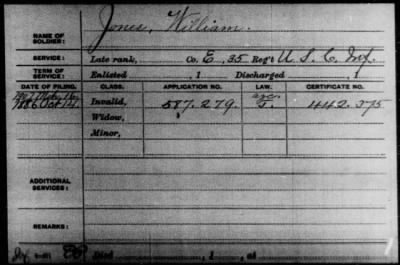 NAME OF SOLDIER: Jones, William.
SERVICE: Late rank, Co. E. 35 Reg't U. S. C. Inf.
TERM OF SERVICE: Enlisted , 1 Discharged , 1
DATE OF FILING. CLASS. APPLICATION NO. LAW. CERTIFICATE NO.
1886 Oct 14 Invalid, 587.279. 442.375
Widow,
Minor,
ADDITIONAL SERVICES:
REMARKS:
Died , 1 , at